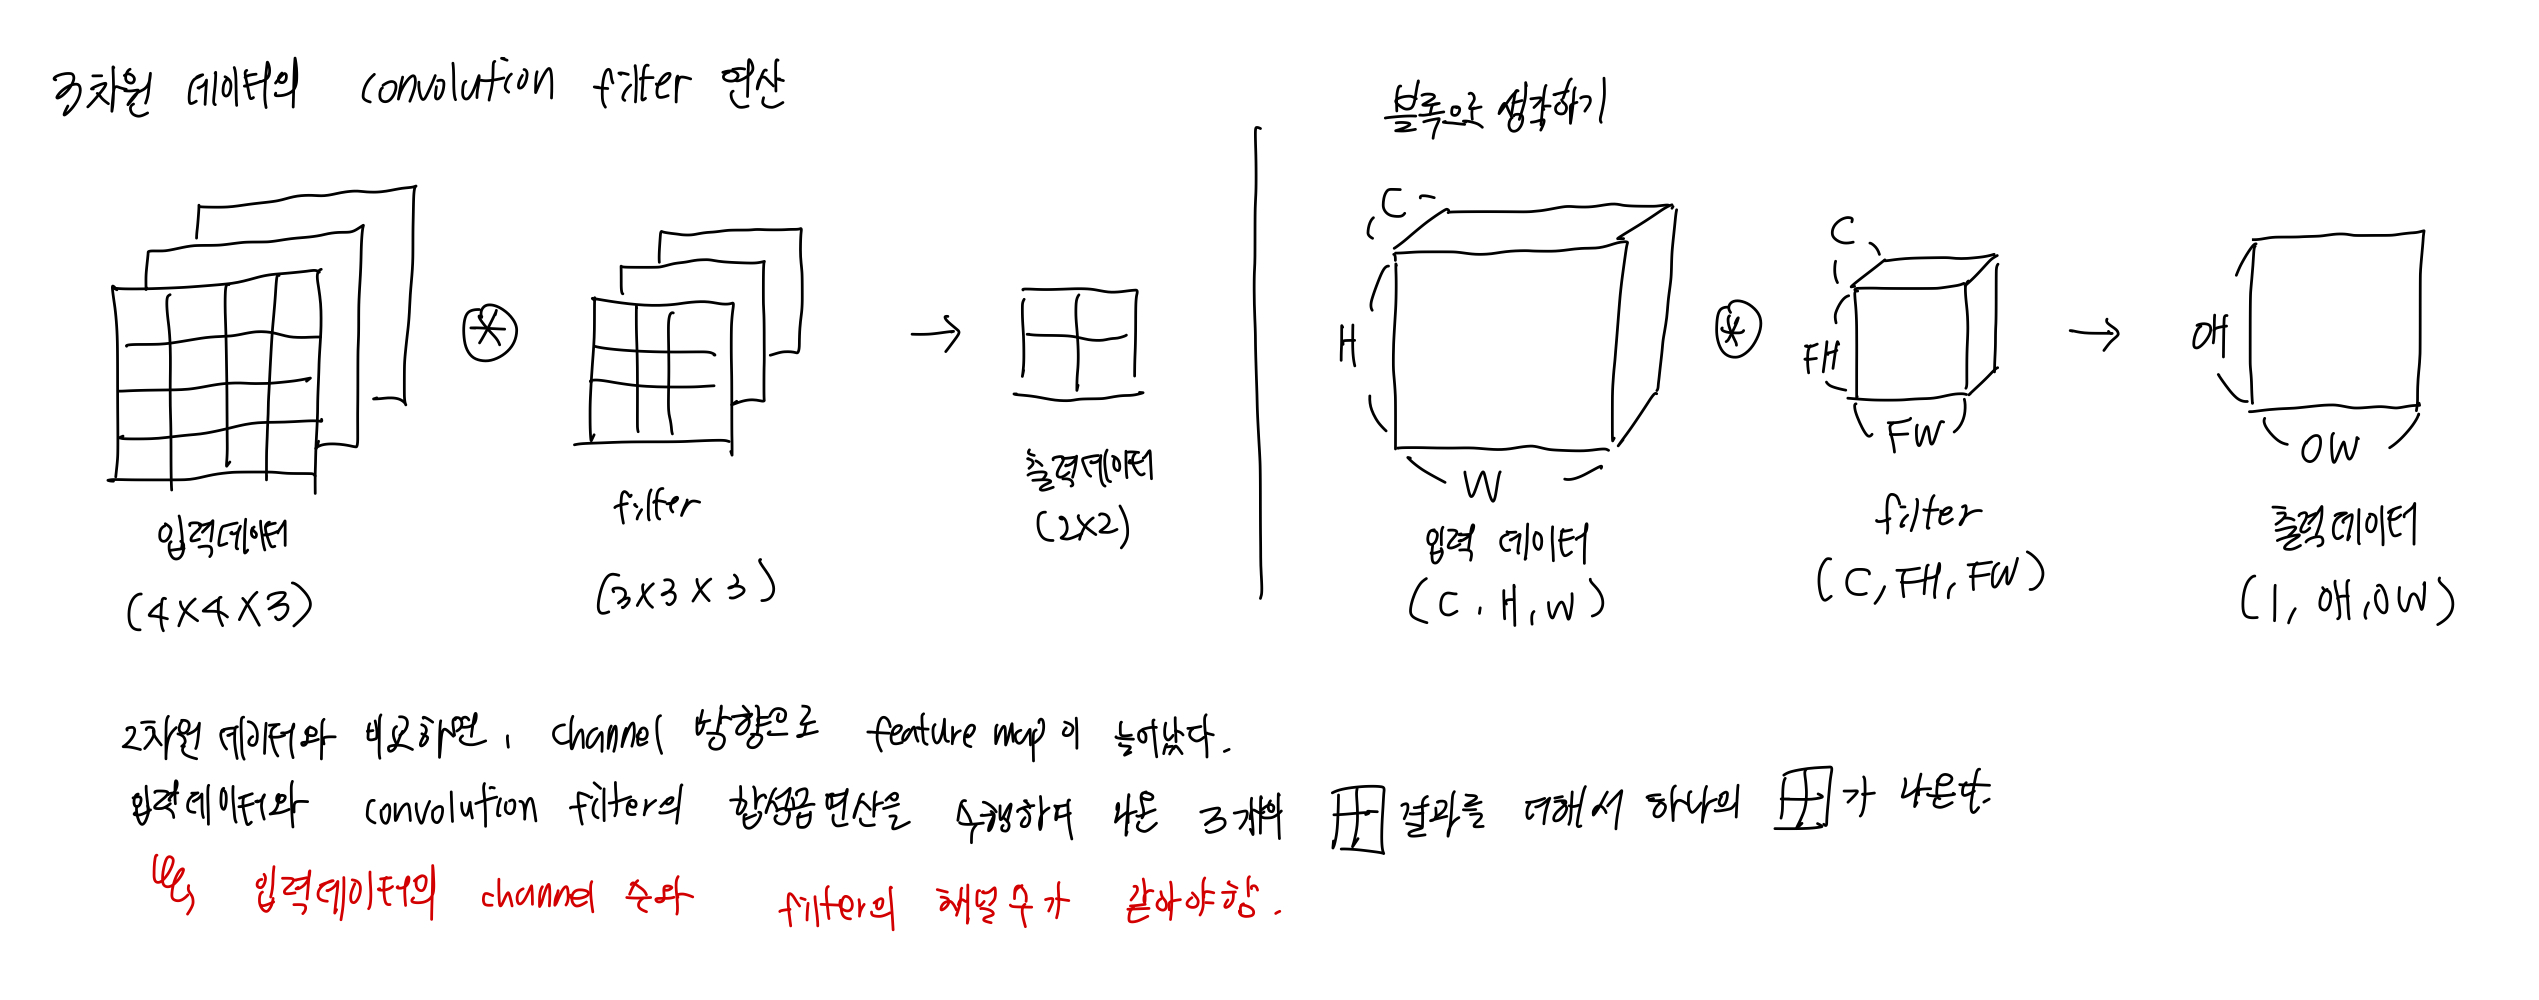 3차원 데이터의 convolution filter 연산
입력데이터
(4X4X3)
filter
(3X3X3)
출력데이터
(2X2)
블록으로 생각하기
C
H
W
입력 데이터
(C, H, W)
C
FH
FW
filter
(C, FH, FW)
OH
OW
출력데이터
(1, OH, OW)
2차원 데이터와 비교하면, channel 방향으로 feature map이 늘어났다.
입력데이터와 convolution filter의 합성곱연산을 수행하며 나온 3개의 결과를 더해서 하나의 가 나온다.
입력데이터의 channel 수와 filter의 채널수가 같아야함.